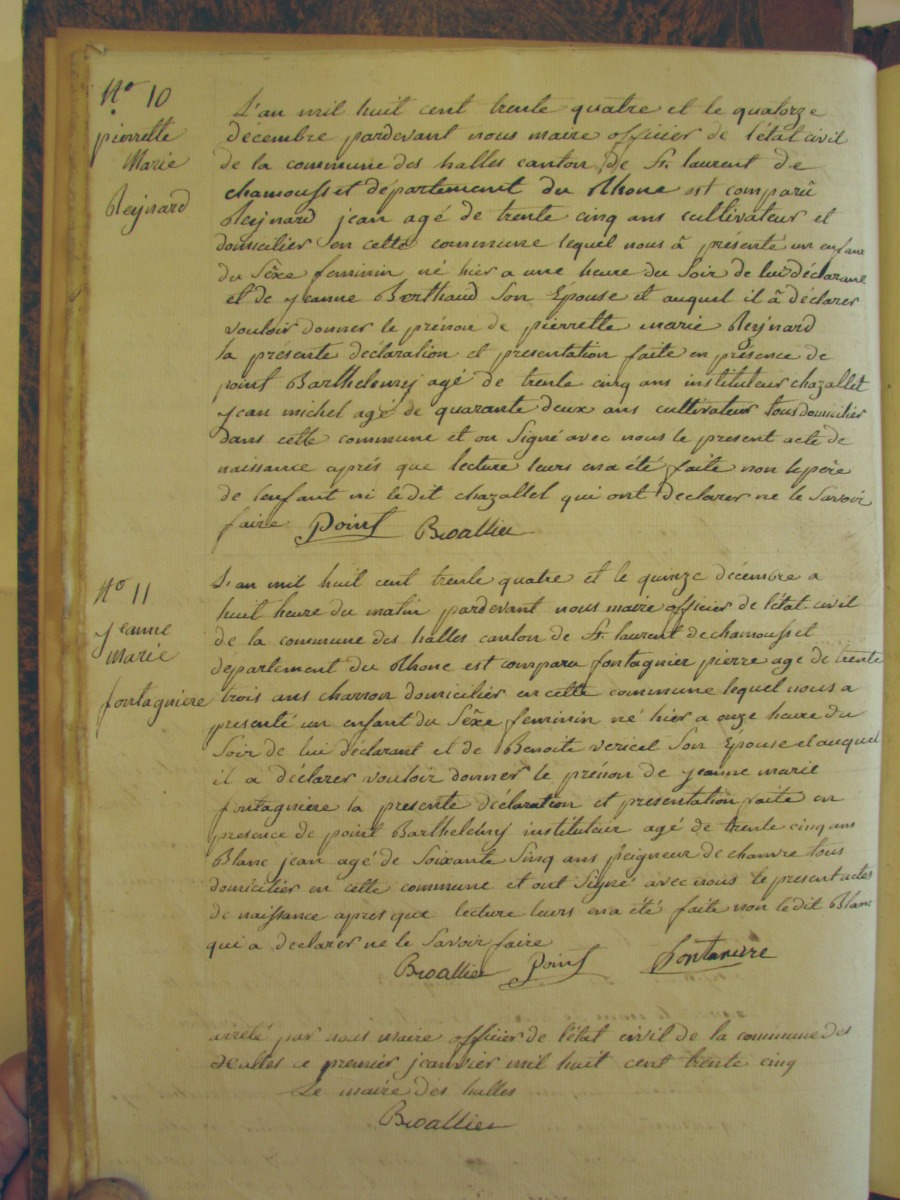 N° 10
pierrette
Marie
Reynard
L'an mil huit cent trente quatre et le quatorze
decembre pardevant nous maire officier de l'état civil
de la commune des halles canton de St. laurent de
chamousset département du Rhone est comparû
Reynard jean agé de trente cinq ans cultivateur et
domicilier en cette commune lequel nous â présenté un enfant
du Sêxe feminin né hier a une heure du Soir de lui déclarant
et de jeanne Berthaud Son Epouse et auquel il â déclarer
vouloir donner le prénon de pierrette marie Reynard
la présente declaration et presentation faite en présence de
point Barthelemy agé de trente cinq ans instituteur chazallet
jean michel agé de quarante deux ans cultivateur tous domicilier
dans cette commune et on Signé avec nous le present acte de
naissance aprés que lecture leurs en a été faite non le père
de l'enfant ni ledit chazallet qui ont declarer ne le Savoir
faire Point
N° 11
jeanne
marie
fontagniere
L'an mil huit cent trente quatre et le quinze décembre a
huit heure du matin pardevant nous maire officier de l'état civil
de la commune des halles canton de St. laurent de chamousset
departement du Rhone est comparu fontagnier pierre age de trente
trois ans charron domicilier en cette commune lequel nous a
presenté un enfant du Sêxe feminin né hier a onze heure du
Soir de lui déclarant et de Benoite vericel Son Epouse et auquel
il a déclarer vouloir donner le prénon de jeanne marie
fontagniere la presente déclaration et presentation faite en
presence de point Barthelemy instituteur agé de trente cinq ans
Blanc jean agé de Soixante Sinq ans peigneur de chanvre tous
domicilier en cette commune et ont Signé avec nous le present actes
de naissance apres que lecture leurs en a été faite non ledit Blanc
qui a declarer ne le Savoir faire
Point Fontaniere
arrêté par nous maire officier de l'état civil de la commune des
Halles ce premier jeanvier mil huit cent trente cinq
Le maire des halles